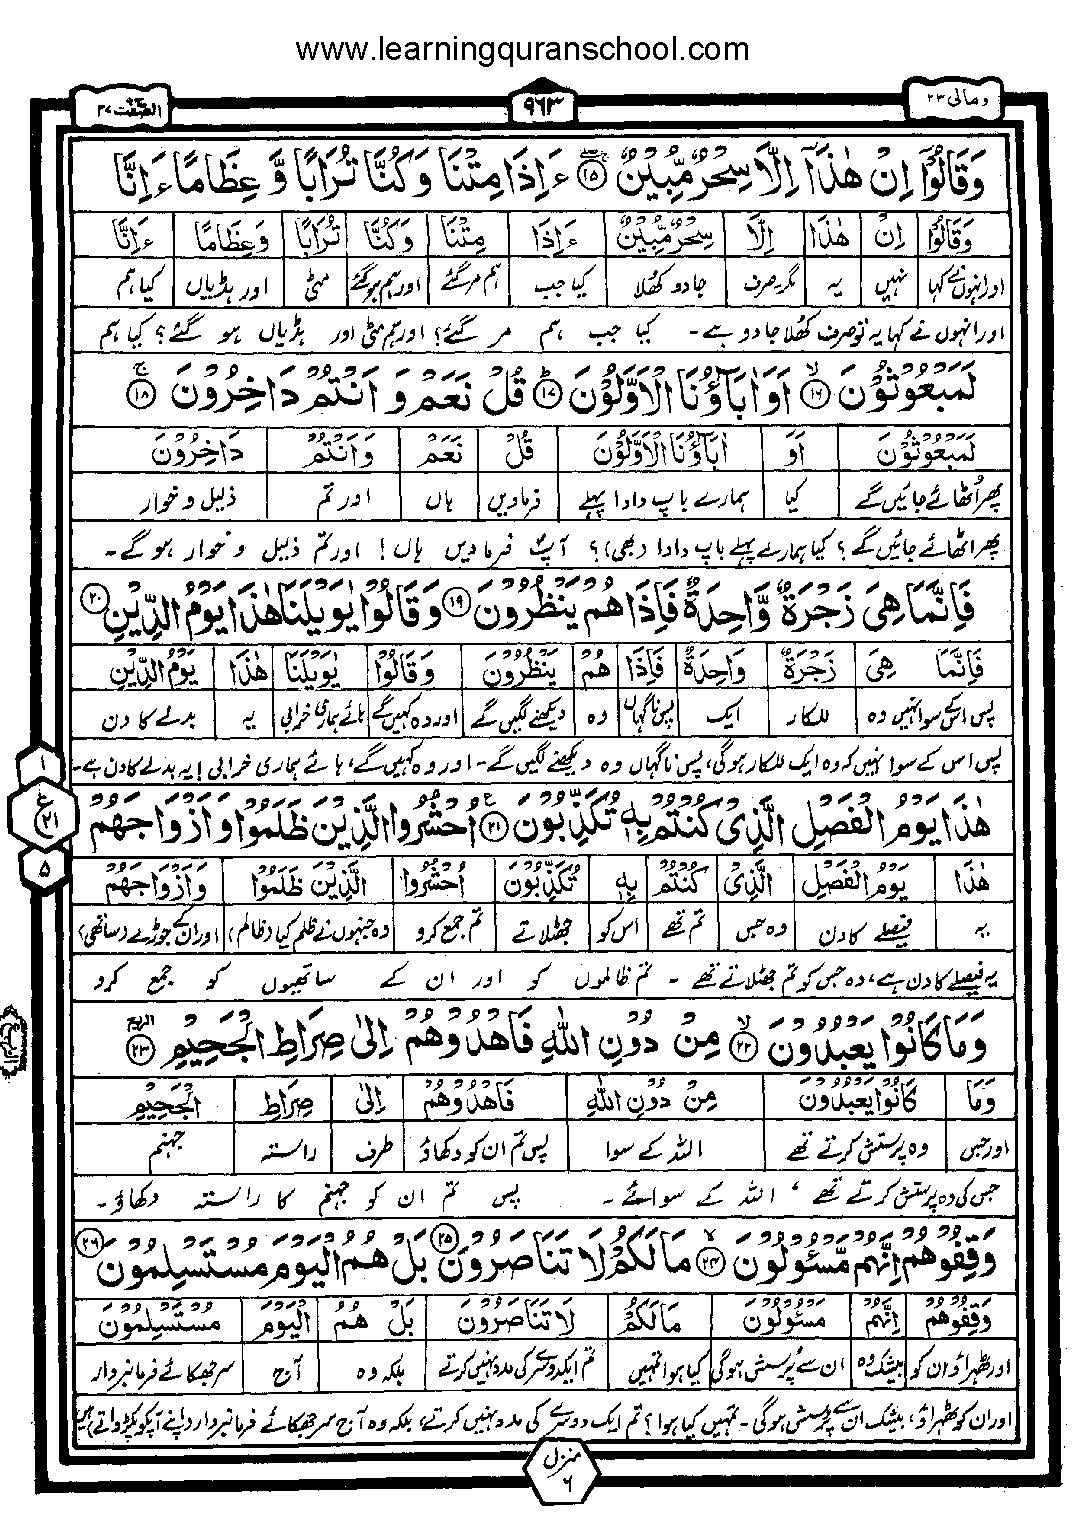 www.learningquranschool.com
ومالی ۲۳
۹۶۳
الصّٰفّٰت ۳۷
وَقَالُوْۤا اِنْ هٰذَاۤ اِلَّا سِحْرٌ مُّبِيْنٌ ۱۵ ءَاِذَا مِتْنَا وَكُنَّا تُرَابًا وَّ عِظَامًا ءَاِنَّا
وَقَالُوْۤا اِنْ هٰذَا اِلَّا سِحْرٌ مُّبِيْنٌ ءَاِذَا مِتْنَا وَكُنَّا تُرَابًا وَعِظَامًا ءَاِنَّا
اور انہوں نے کہا نہیں یہ مگر صرف جادو کھلا کیا جب ہم مر گئے اور ہم ہو گئے مٹی اور ہڈیاں کیا ہم
اور انہوں نے کہا یہ تو صرف کھلا جادو ہے۔ کیا جب ہم مر گئے؟ اور ہم مٹی اور ہڈیاں ہو گئے؟ کیا ہم
لَمَبْعُوْثُوْنَ ۱۶ اَوَاٰبَآؤُنَا الْاَوَّلُوْنَ ۱۷ قُلْ نَعَمْ وَ اَنْتُمْ دَاخِرُوْنَ ۱۸
لَمَبْعُوْثُوْنَ اَوَ اٰبَآؤُنَا الْاَوَّلُوْنَ قُلْ نَعَمْ وَاَنْتُمْ دَاخِرُوْنَ
پھر اٹھائے جائیں گے کیا ہمارے باپ دادا پہلے فرمادیں ہاں اور تم ذلیل و خوار
پھر اٹھائے جائیں گے؟ کیا ہمارے پہلے باپ دادا (بھی)؟ آپؐ فرمادیں ہاں! اور تم ذلیل و خوار ہو گے۔
فَاِنَّمَا هِيَ زَجْرَةٌ وَّاحِدَةٌ فَاِذَا هُمْ يَنْظُرُوْنَ ۱۹ وَقَالُوْا يٰوَيْلَنَا هٰذَا يَوْمُ الدِّيْنِ ۲۰
فَاِنَّمَا هِيَ زَجْرَةٌ وَاحِدَةٌ فَاِذَا هُمْ يَنْظُرُوْنَ وَقَالُوْا يٰوَيْلَنَا هٰذَا يَوْمُ الدِّيْنِ
پس اسکے سوا نہیں وہ للکار ایک پس ناگہاں وہ دیکھنے لگیں گے اور وہ کہیں گے ہائے ہماری خرابی یہ بدلے کا دن
پس اس کے سوا نہیں کہ وہ ایک للکار ہوگی، پس ناگہاں وہ دیکھنے لگیں گے۔ اور وہ کہیں گے، ہائے ہماری خرابی! یہ بدلے کا دن ہے۔
۱
ع ۲۱
۵
هٰذَا يَوْمُ الْفَصْلِ الَّذِيْ كُنْتُمْ بِهٖ تُكَذِّبُوْنَ ۲۱ اُحْشُرُوا الَّذِيْنَ ظَلَمُوْا وَاَزْوَاجَهُمْ
هٰذَا يَوْمُ الْفَصْلِ الَّذِيْ كُنْتُمْ بِهٖ تُكَذِّبُوْنَ اُحْشُرُوا الَّذِيْنَ ظَلَمُوْا وَاَزْوَاجَهُمْ
یہ فیصلے کا دن وہ جس تم تھے اس کو جھٹلاتے تم جمع کرو وہ جنہوں نے ظلم کیا (ظالم) اور ان کے جوڑے (ساتھی)
یہ فیصلے کا دن ہے، وہ جس کو تم جھٹلاتے تھے۔ تم ظالموں کو اور ان کے ساتھیوں کو جمع کرو
وَمَا كَانُوْا يَعْبُدُوْنَ ۲۲ مِنْ دُوْنِ اللّٰهِ فَاهْدُوْهُمْ اِلٰى صِرَاطِ الْجَحِيْمِ ۲۳
وَمَا كَانُوْا يَعْبُدُوْنَ مِنْ دُوْنِ اللّٰهِ فَاهْدُوْهُمْ اِلٰى صِرَاطِ الْجَحِيْمِ
اور جس وہ پرستش کرتے تھے اللہ کے سوا پس تم ان کو دکھاؤ طرف راستہ جہنم
جس کی وہ پرستش کرتے تھے، اللہ کے سوائے۔ پس تم ان کو جہنم کا راستہ دکھاؤ۔
وَقِفُوْهُمْ اِنَّهُمْ مَّسْـُٔوْلُوْنَ ۲۴ مَا لَكُمْ لَا تَنَاصَرُوْنَ ۲۵ بَلْ هُمُ الْيَوْمَ مُسْتَسْلِمُوْنَ ۲۶
وَقِفُوْهُمْ اِنَّهُمْ مَسْئُوْلُوْنَ مَا لَكُمْ لَا تَنَاصَرُوْنَ بَلْ هُمُ الْيَوْمَ مُسْتَسْلِمُوْنَ
اور ٹھہراؤ ان کو بیشک وہ ان سے پرسش ہوگی کیا ہوا تمہیں تم ایک دوسرے کی مدد نہیں کرتے بلکہ وہ آج سر جھکائے فرمانبردار
اور ان کو ٹھہراؤ، بیشک ان سے پرسش ہوگی۔ تمہیں کیا ہوا؟ تم ایک دوسرے کی مدد نہیں کرتے، بلکہ وہ آج سر جھکائے فرمانبردار (اپنے آپکو پکڑواتے) ہیں
منزل ۶